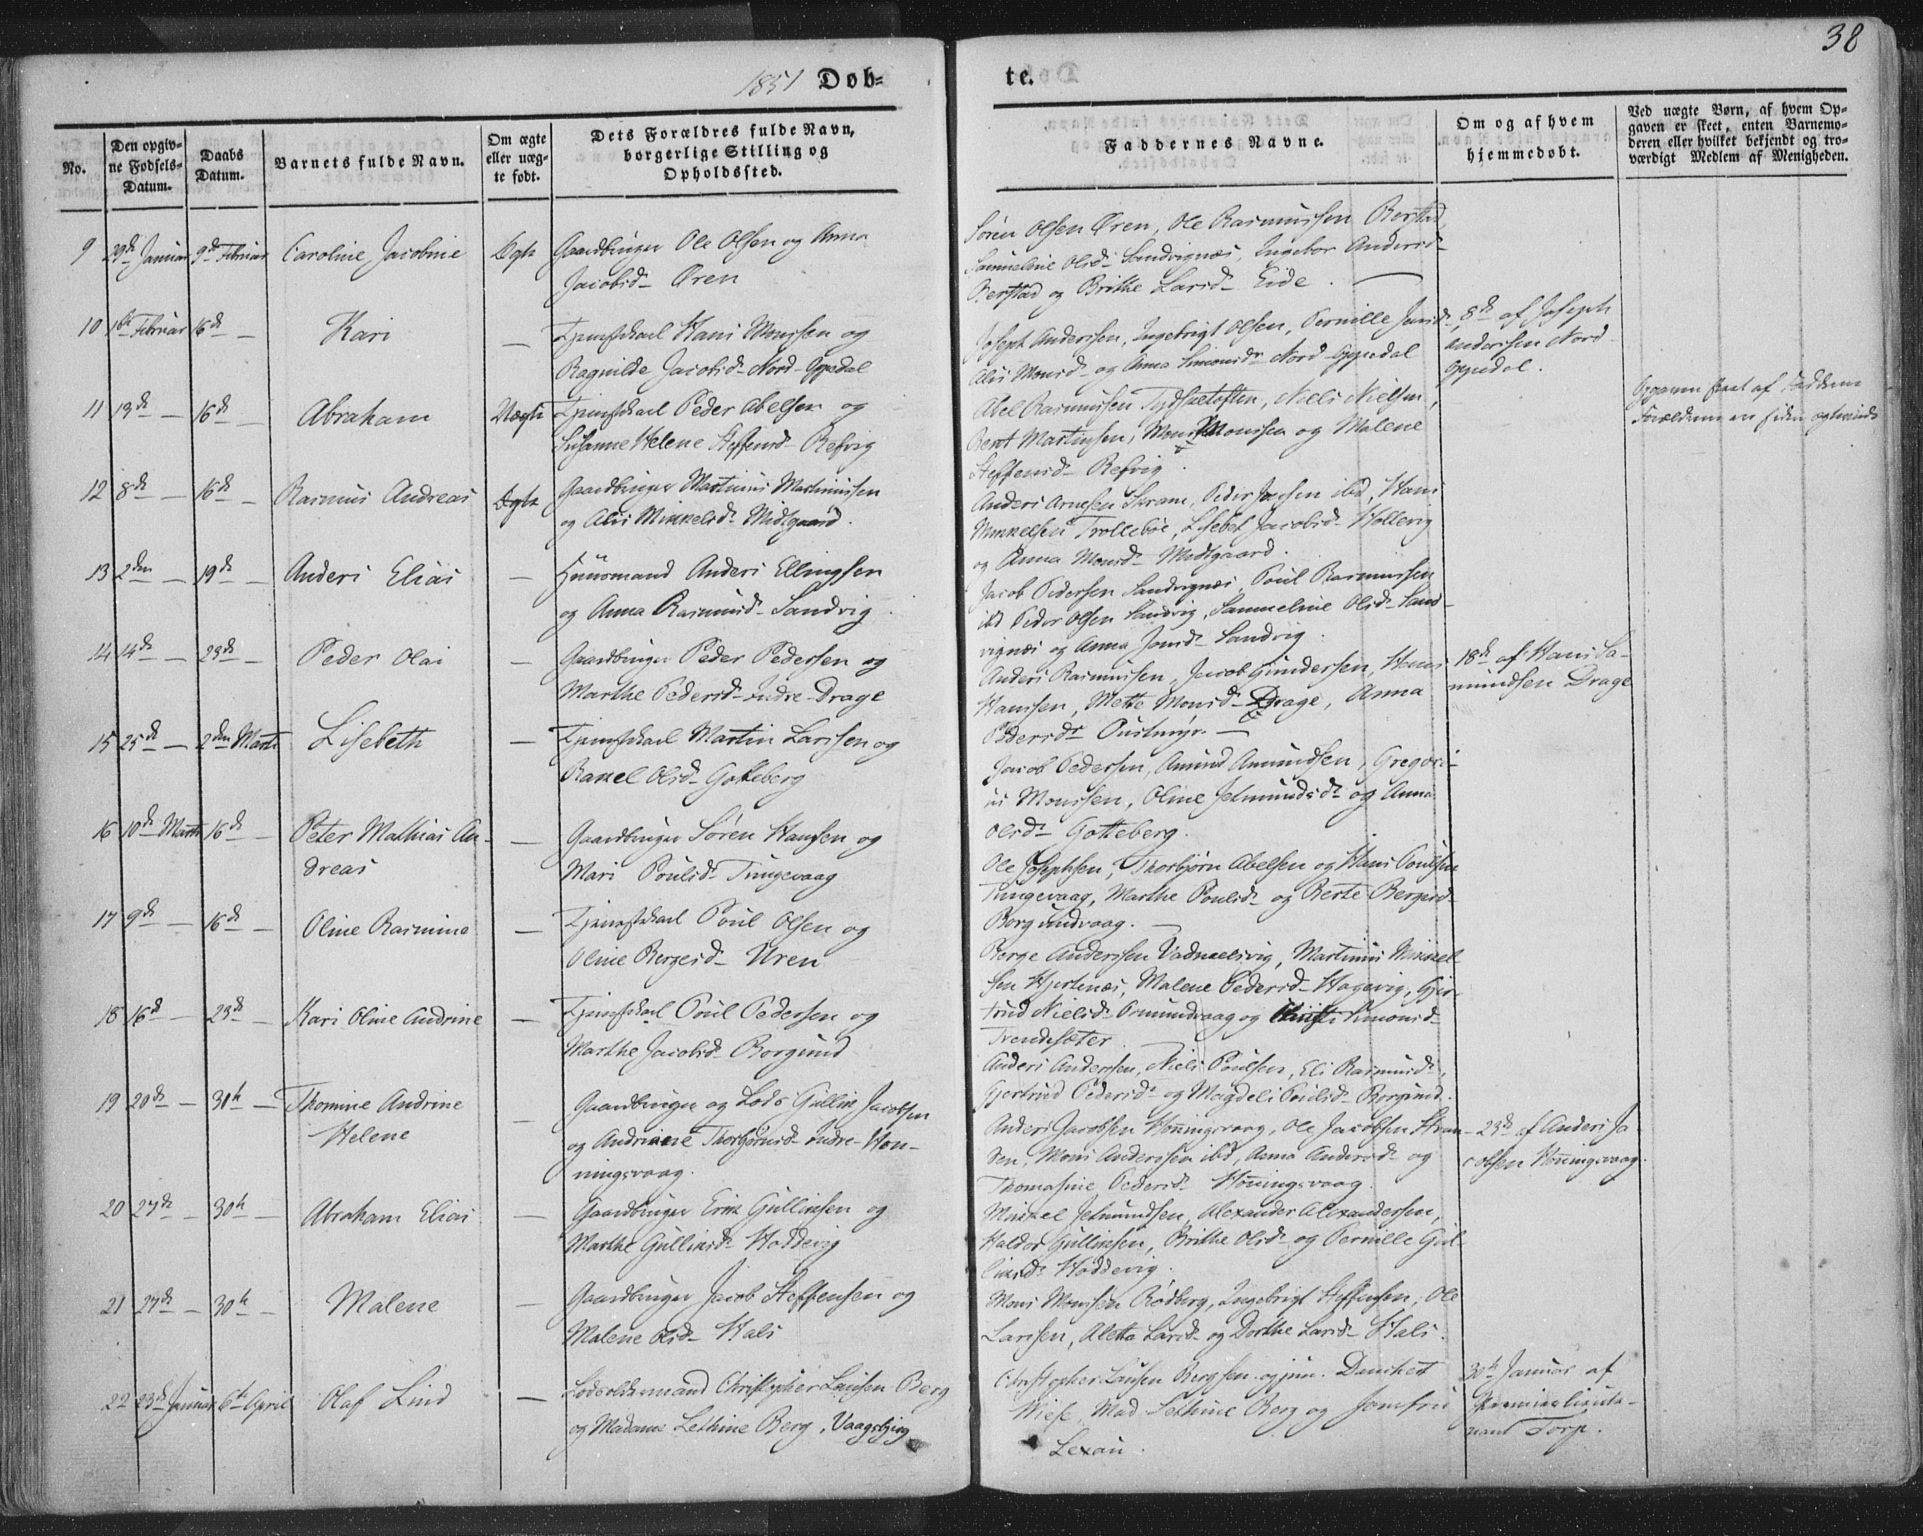 38
1851 Døb-
te.
No.
Den opgiv-
ne Fødsels-
Datum.
Daabs
Datum.
Barnets fulde Navn.
Om ægte
eller uæg-
te født.
Dets Forældres fulde Navn,
borgerlige Stilling og
Opholdssted.
Faddernes Navne.
Om og af hvem
hjemmedøbt.
Ved uægte Børn, af hvem Op-
gaven er skeet, enten Barnemo-
deren eller hvilket bekjendt og tro-
værdigt Medlem af Menigheden.
9 29de Januar 9de Februar Caroline Jacobine Ægte Gaardbruger Ole Olsen og Anna
Jacobsd. Øren
Søren Olsen Øren, Ole Rasmussen Berstad
Sammeline Olsd. Sandvignæs, Ingebor Andersd.
Berstad og Brithe Larsd. Eide.
10 1ste Februar 16de — Kari — Tjenestekarl Hans Monssen og
Ragnilde Jacobsd. Nord-Oppedal
Joseph Anderssen, Ingebrigt Olsen, Pernille Jensd.
Alis Monsd. og Anna Simonsd. Nord Oppedal
8de af Joseph
Anderssen Nord
Oppedal.
11 13de — 16de — Abraham Uægte Tjenestekarl Peder Abelsen og
Susanne Helene Steffensd. Refvig
Abel Rasmussen Tydsketoften, Niels Nielsen,
Bent Martinsen, Mons Monssen og Malene
Steffensd. Refvig.
Opgaven skeet af Fadderne
12 8de — 16de — Rasmus Andreas Ægte Gaardbruger Martinus Martinussen
og Alis Mikkelsd. Midtgaard.
Anders Arnesen Skram, Peder ibd, Hans
Mikkelsen Trollebøe, Lisebet Jacobsd. Hollevig
og Anna Monsd. Midtgaard.
13 2den — 19de — Anders Elias — Huusmand Anders Ellingsen
og Anna Rasmusd. Sandvig.
Jacob Pedersen Sandvignæs, Poul Rasmussen
ibd Peder Olsen Sandvig, Sammeline Olsd. Sand-
vignæs og Anna Jonsd. Sandvig.
14 14de — 23de — Peder Olai — Gaardbruger Peder Pedersen og
Marthe Pedersd. Indre-Drage
Anders Rasmussen, Jacob Gundersen, Hans
Hanssen, Mette Monsd. Drage, Anna
Pedersd. —
18de af Hans Sa-
mundsen Drage
15 25de — 2den Marts Lisebeth — Tjenestekarl Martin Larssen og
Rakel Olsd. Gotteberg
Jacob Pedersen, Amund Amundsen, Gregori-
us Monssen, Oline Jetmundsd. og Anna
Olsd. Gotteberg.
16 10de Marts 16de — Peter Mathias An-
dreas — Gaardbruger Søren Hanssen og
Mari Poulsd. Tungevaag
Ole Josephsen, Thorbjørn Abelsen og Hans Poulsen
Tungevaag, Marthe Poulsd. og Berte Bergesd.
Borgundvaag. —
17 9de — 16de — Oline Rasmine — Tjenestekarl Poul Olsen og
Oline Bergesd. Uren
Berge Anderssen Vadmelsvig, Martinus Mikkel-
sen Hjertenæs, Malene Pedersd. Hagevig, Gjer-
trud Nielsd. Osmundvaag og Simonsd.
Trendesæter.
18 16de — 23de — Kari Oline Andrine — Tjenestekarl Poul Pedersen og
Marthe Jacobsd. Borgund
Anders Anderssen, Niels Poulsen, Eli Rasmusd.,
Gjertrud Pedersd. og Magdeli Poulsd. Borgund.
19 20de — 30te — Thomine Andrine
Helene — Gaardbruger og Lods Gullik Jacobsen
og Andriane Thorbjørnsd. Indre-Hon-
ningsvaag.
Anders Jacobsen Honningsvaag, Ole Jacobsen Stran-
den, Mons Anderssen ibd, Anna Andersd. og
Thomasine Pedersd. Honningsvaag.
23de af Anders Ja-
cobsen Honningsvaag.
20 27de — 30te — Abraham Elias — Gaardbruger Erik Gulliksen og
Marthe Gulliksd. Hoddevig
Mikkel Jetmundsen, Alexander Alexandersen,
Haldor Gulliksen, Brithe Olsd. og Pernille Gul-
liksd. Hoddevig.
21 27de — 30te — Malene — Gaardbruger Jacob Steffensen og
Malene Olsd. Hals
Mons Monssen Rødberg, Ingebrigt Steffensen, Ole
Larssen, Aletta Larsd. og Dorthe Larsd. Hals.
22 23de Januar 6te April Olaf Lind — Lodsoldermand Christopher Lausen Berg
og Madame Lethine Berg, Vaagsbjerg
Christopher Lausen Berg sen. og jun. Danckert
Wiese, Mad Lethine Berg og Jomfru
Lexau.
30te Januar af
Premierlieute-
nant Torp.